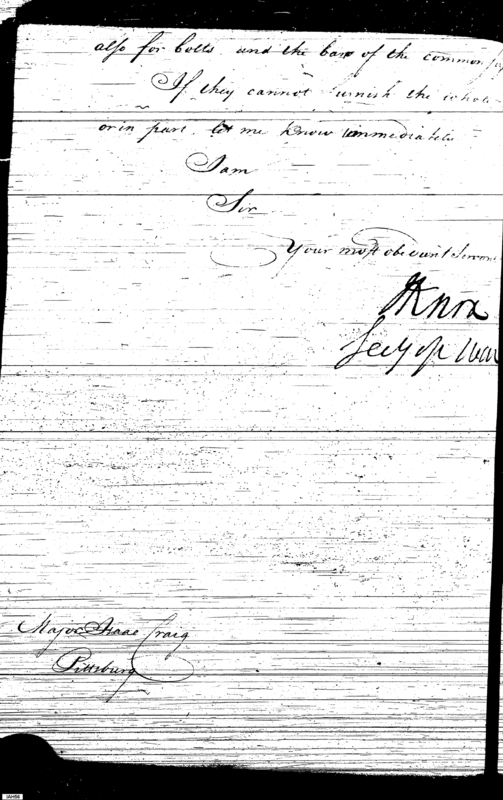 also for bolts and the bar of the common
If they cannot furnish the whole
or in part let me know immediately
I am
Sir
Your most obedient Servant
HKnox
Secy of War
Major Isaac Craig
Pittsburg
IAH56